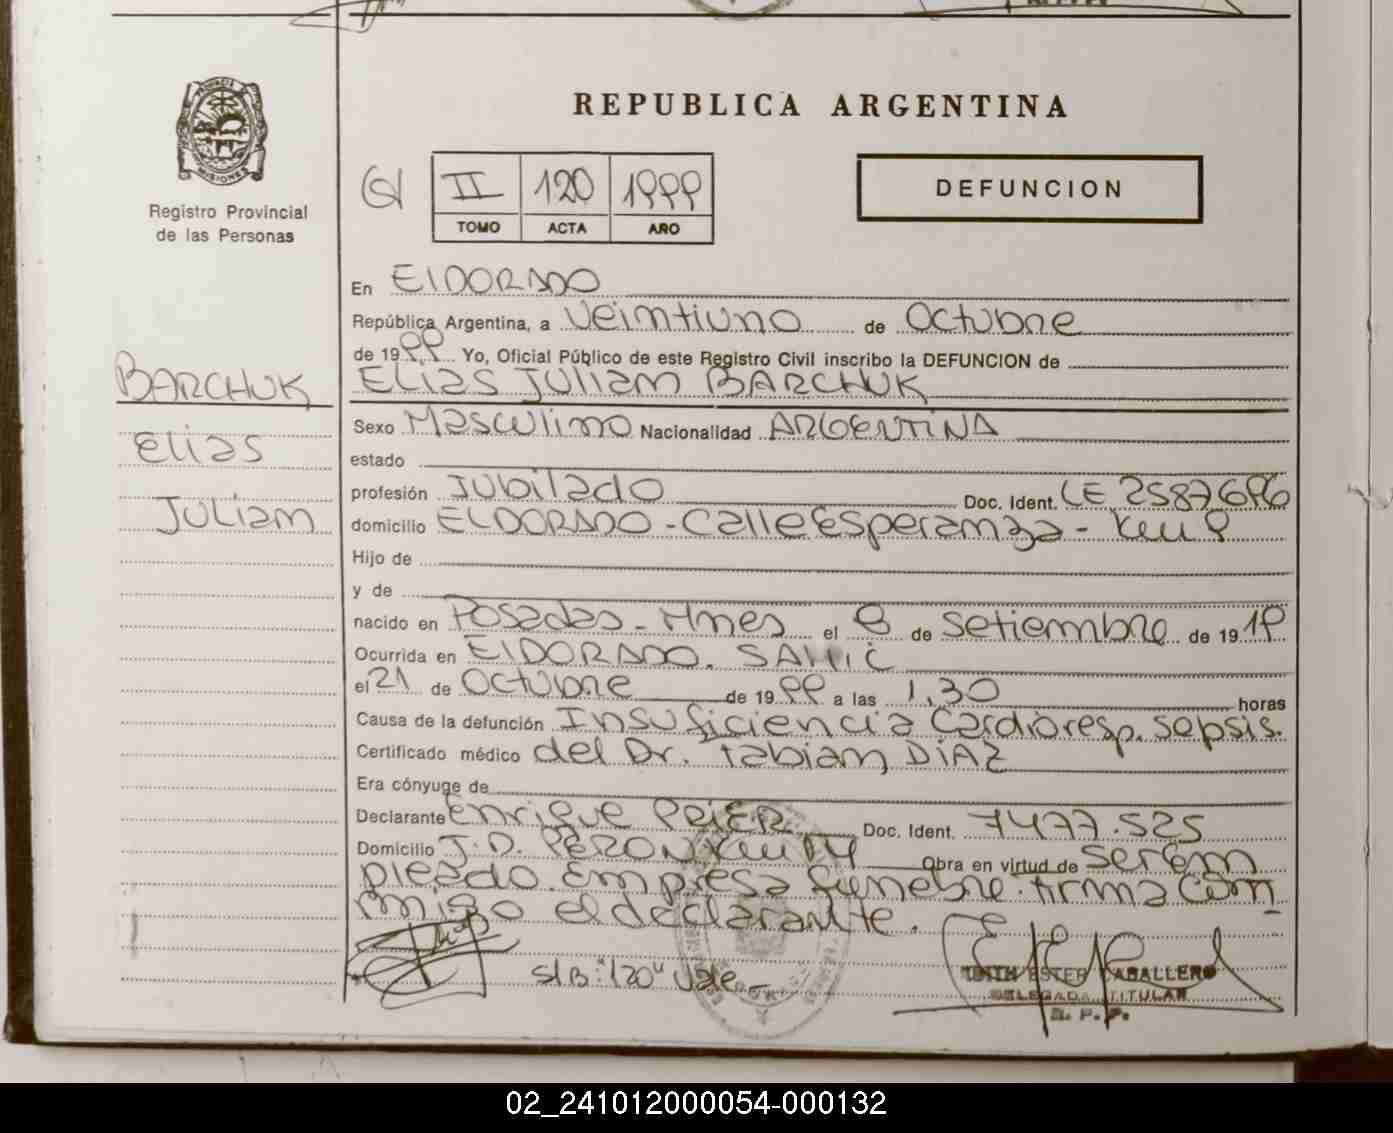 PROVINCIA DE
MISIONES
Registro Provincial
de las Personas
REPUBLICA ARGENTINA
II 120 1999
TOMO ACTA AÑO
DEFUNCION
En ELDORADO
República Argentina, a veintiuno de Octubre
de 1999 Yo, Oficial Público de este Registro Civil inscribo la DEFUNCION de
ELIAS JULIAN BARCHUK
BARCHUK
Elias
JULIAN
Sexo Masculino Nacionalidad ARGENTINA
estado
profesión JUBILADO Doc. Ident. LE 2587696
domicilio ELDORADO - Calle Esperanza - Km 9
Hijo de
y de
nacido en Posadas - Mnes el 8 de Setiembre de 1919
Ocurrida en ELDORADO. SAMIC
el 21 de Octubre de 1999 a las 1,30 horas
Causa de la defunción Insuficiencia Cardioresp. sepsis.
Certificado médico del Dr. Fabian DIAZ
Era cónyuge de
Declarante Enrique Doc. Ident. 7477.525
Domicilio J.D. PERON Km Obra en virtud de ser Em
pleado Empresa funebre. firma Con
migo el declarante.
S/B: "120" Vale -
EDITH ESTER CABALLERO
DELEGADA TITULAR
R. P. P.
02_241012000054-000132